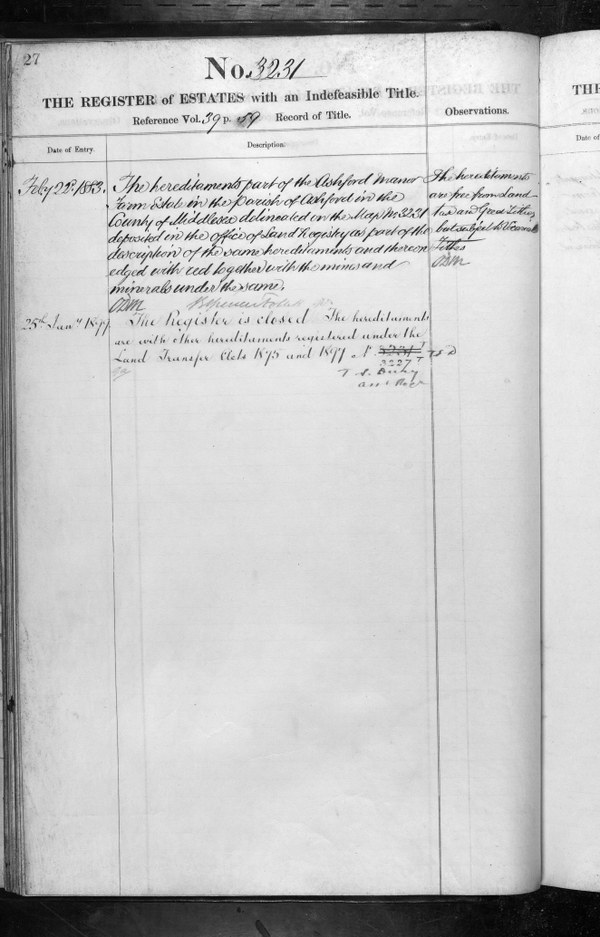 27
No. 3231
THE REGISTER of ESTATES with an Indefeasible Title.
Reference Vol. 39 p. 59 Record of Title.
Observations.
Date of Entry.
Description.
Feby 22d 1883.
The hereditaments part of the Ashford Manor
Farm Estate in the parish of Ashford in the
County of Middlesex delineated on the Map No 3231
deposited in the office of Land Registry as part of the
description of the same hereditaments and thereon
edged with red together with the mines and
minerals under the same.
The hereditaments
are free from Land
tax and Great Tithes
but subject to Vicarial
Tithes
25th Jany 1899
The Register is closed The hereditaments
are with other hereditaments registered under the
Land Transfer Acts 1875 and 1897
3231
3227
THE
Date of